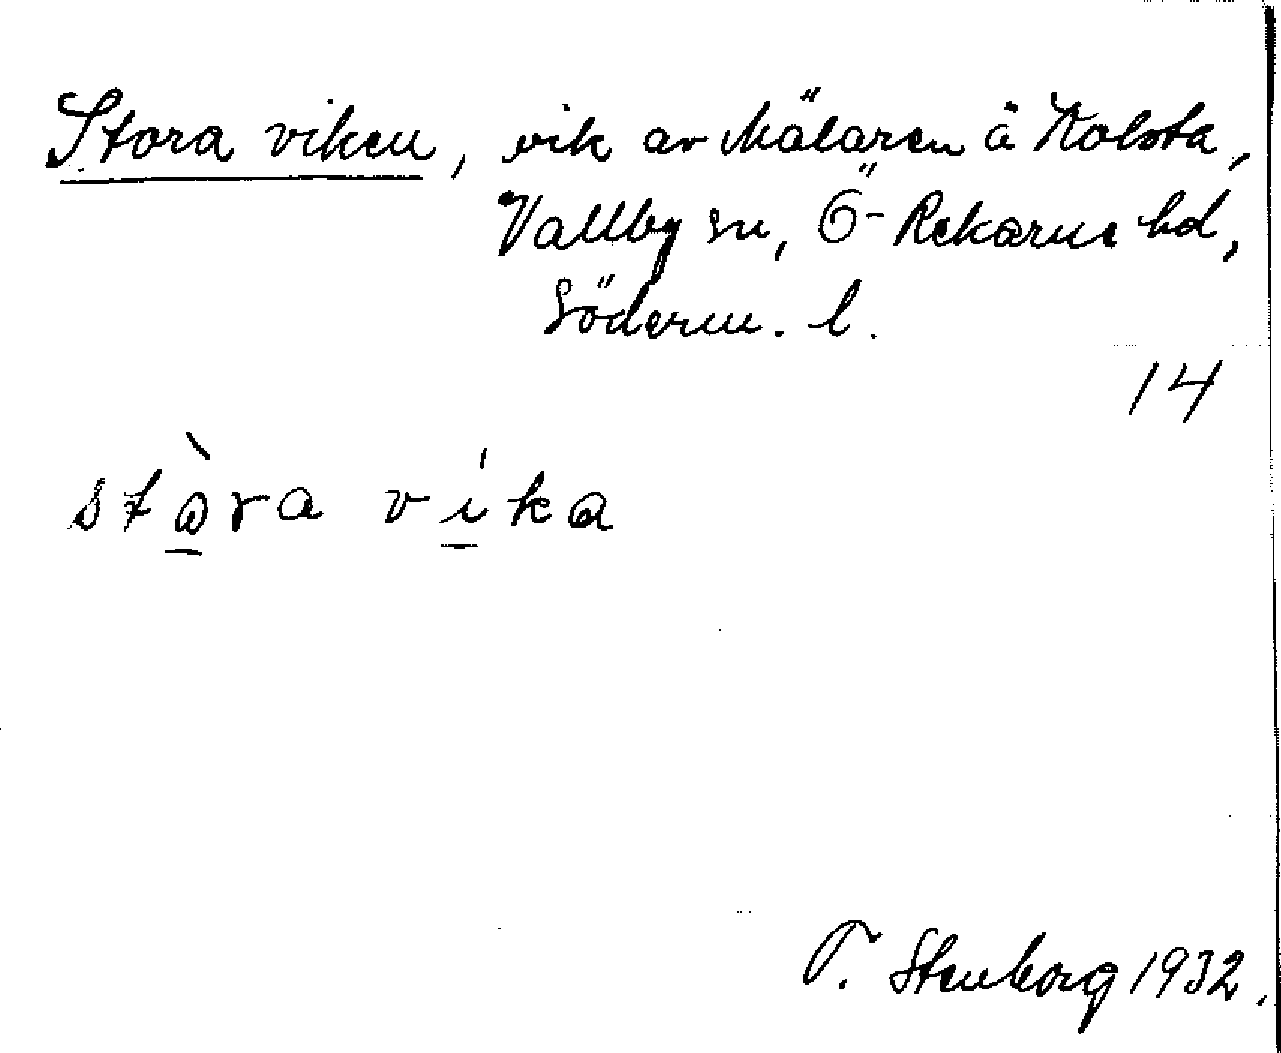 Stora viken, vik av Mälaren å Kolsta,
Vallby sn, Ö-Rekarne hd,
Söderm. l.
14
stòra víka
T. Stenborg 1932.